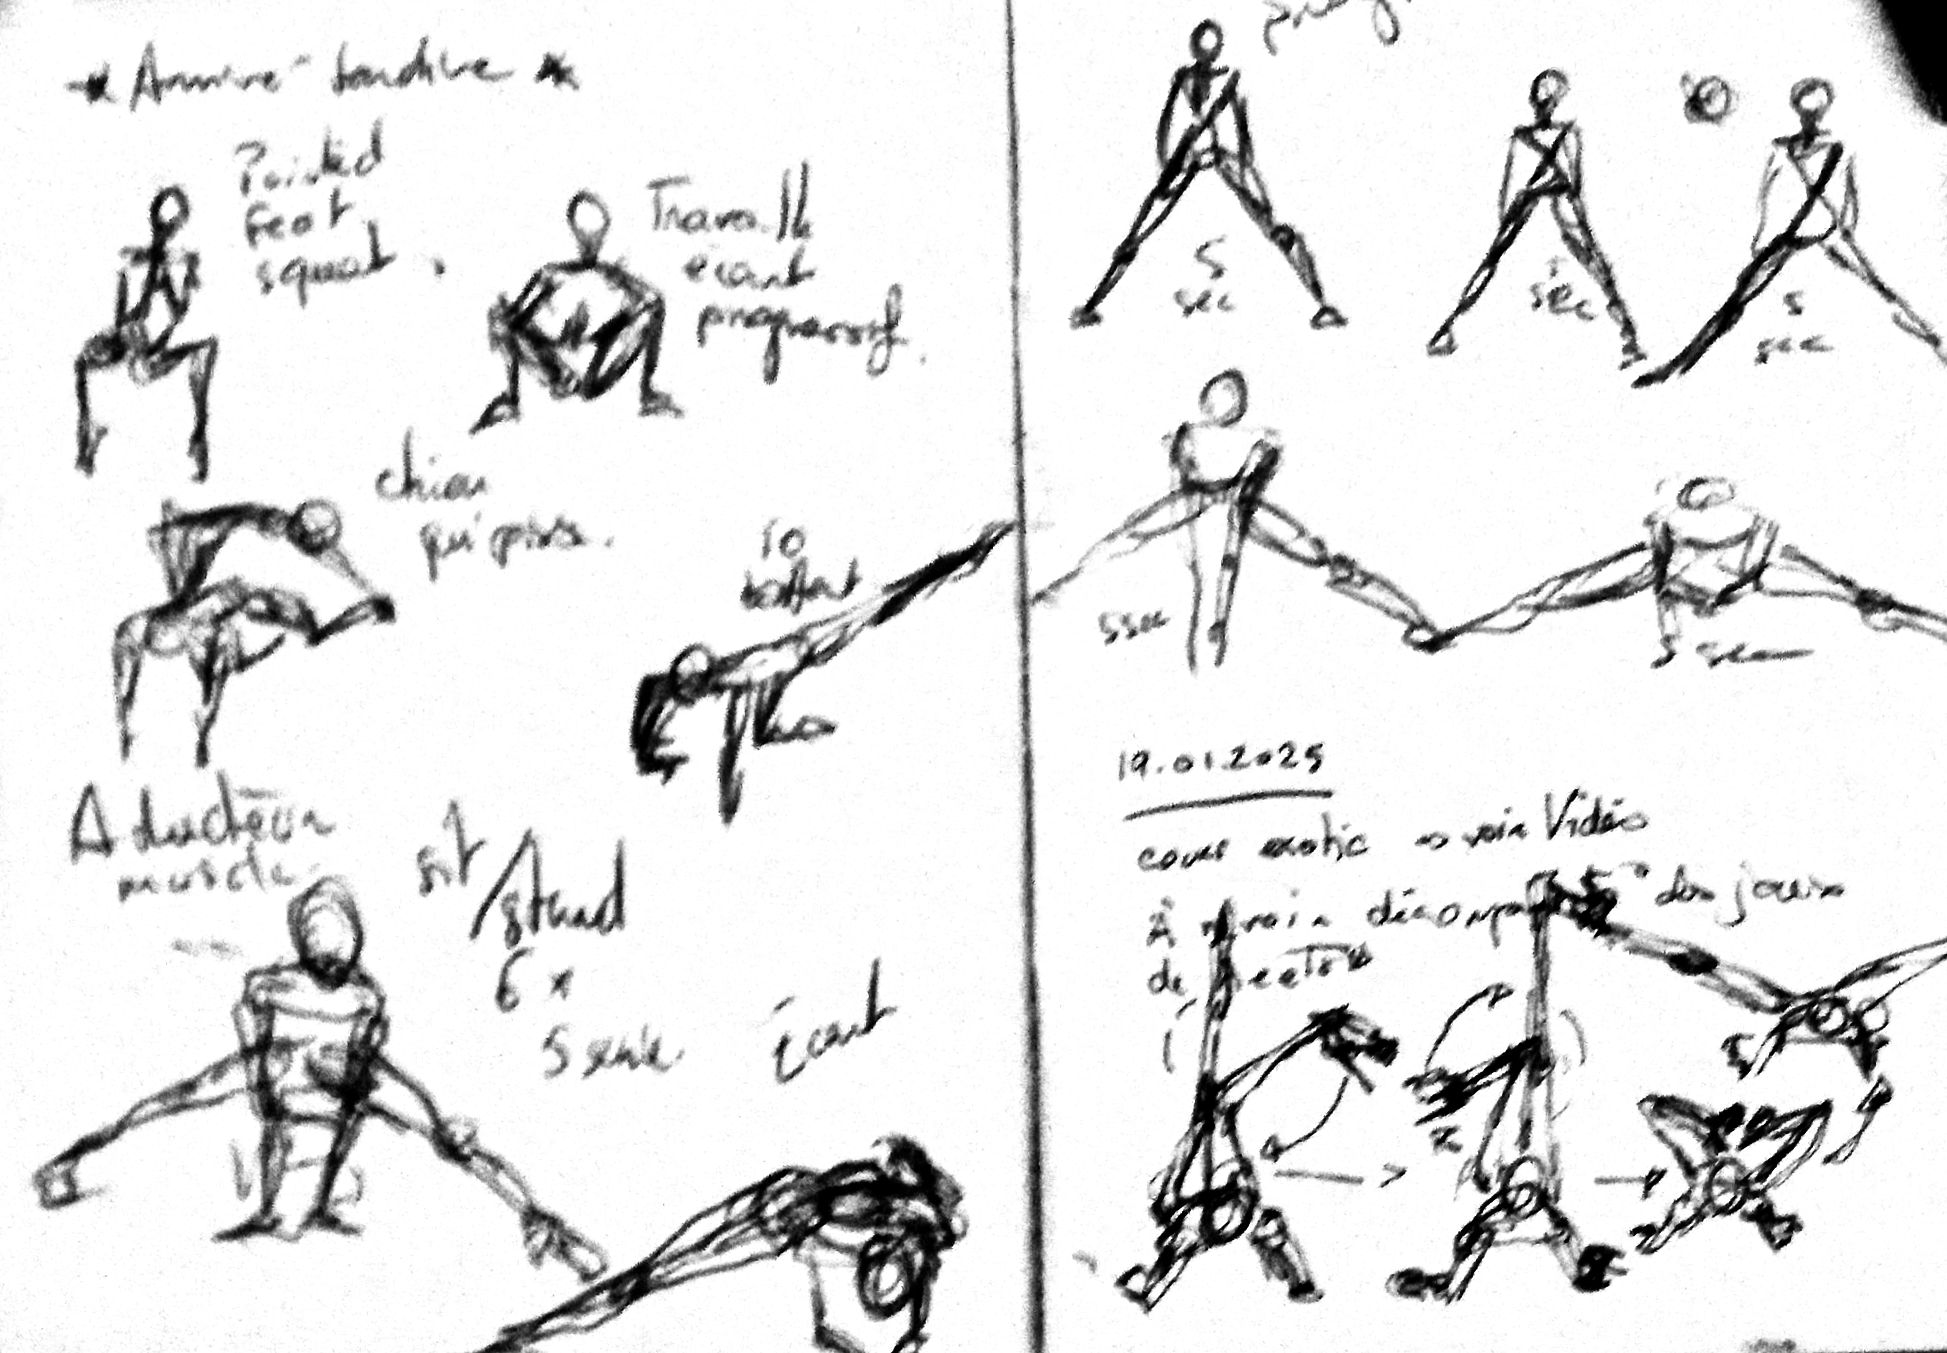 * Arrivée tardive *
Pointed
feet
squat.
Travaille
écart
progressif.
chien
qui pisse.
10
battant
Adducteur
muscle.
sit
/stand
6 x
écart
5
sec
sec
5
sec
5 sec
5 sec
19.01.2025
cours exotic → voir Vidéo
à revoir
de